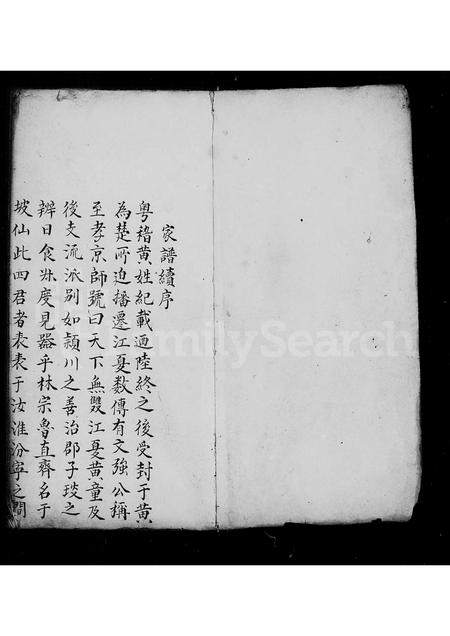 家譜續序
粵稽黃姓紀載迺陸終之後受封于黃
為楚所迫播遷江夏数傳有文強公稱
至孝京師號曰天下無雙江夏黃童及
後支流派別如頴川之善治郡子琰之
辨日食㳂度見器乎林宗魯直齊名于
坡仙此四君者表表于汝淮汾寧之間
FamilySearch